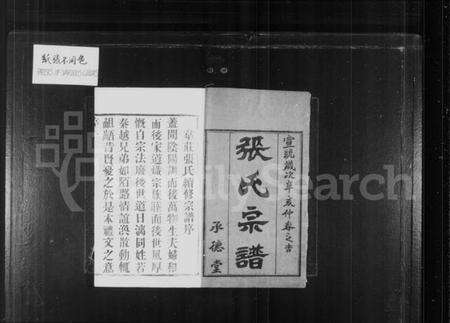 紙張不同色
PAPERS OF VARIOUS COLORS
宣統歲次辛亥仲春之吉
張氏宗譜
承德堂
莊張氏續修宗譜序
蓋聞陰陽調而後萬物生夫婦和
而後家道成宗族睦而後世風厚
慨自宗法廢後世道日漓同姓若
秦越兄弟如陌路情誼渙散動輒
齟齬昔賢憂之於是本禮文之意
FamilySearch